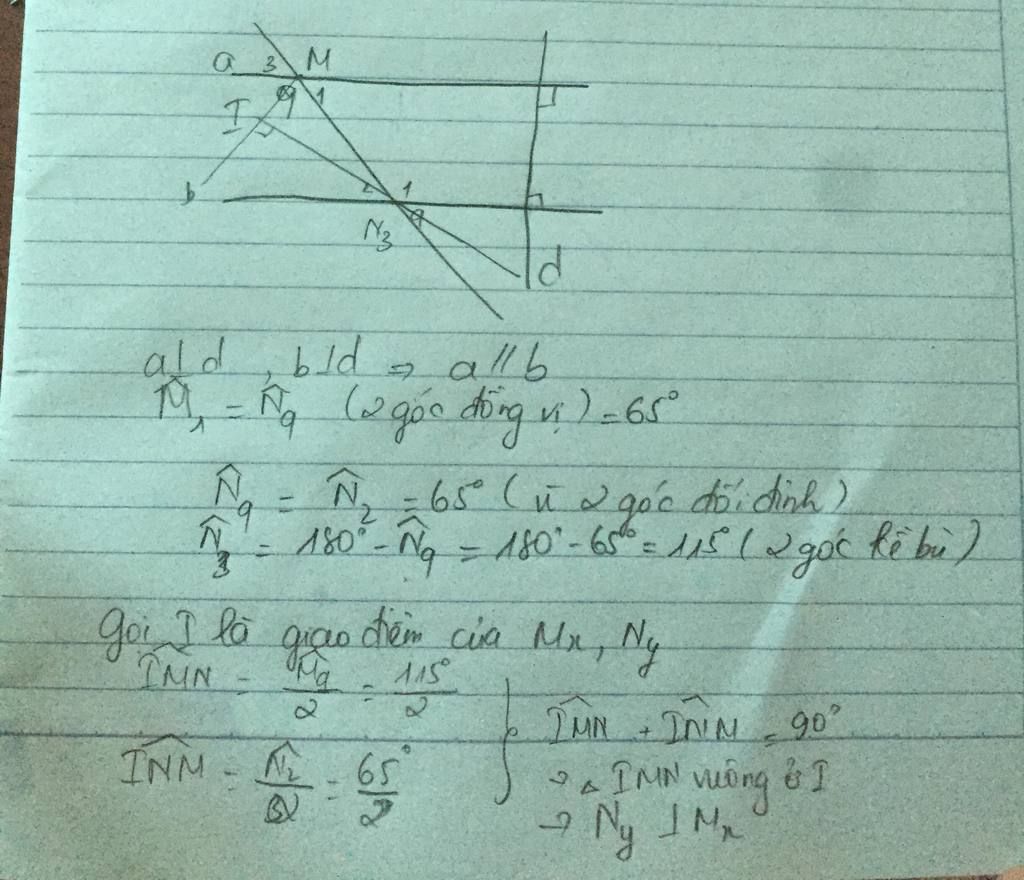 a 3 M
4 1
I
b 2 1
4
N3
d
a⊥d , b⊥d ⇒ a // b
M̂1 = N̂4 (2 góc đồng vị) = 65°
N̂4 = N̂2 = 65° (vì 2 góc đối đỉnh)
N̂3 = 180° - N̂4 = 180° - 65° = 115° (2 góc kề bù)
Gọi I là giao điểm của Mx, Ny
IMN = M̂4/2 = 115°/2
IMN + INM = 90°
INM = N̂2/2 = 65°/2
→ △ IMN vuông ở I
→ Ny ⊥ Mx